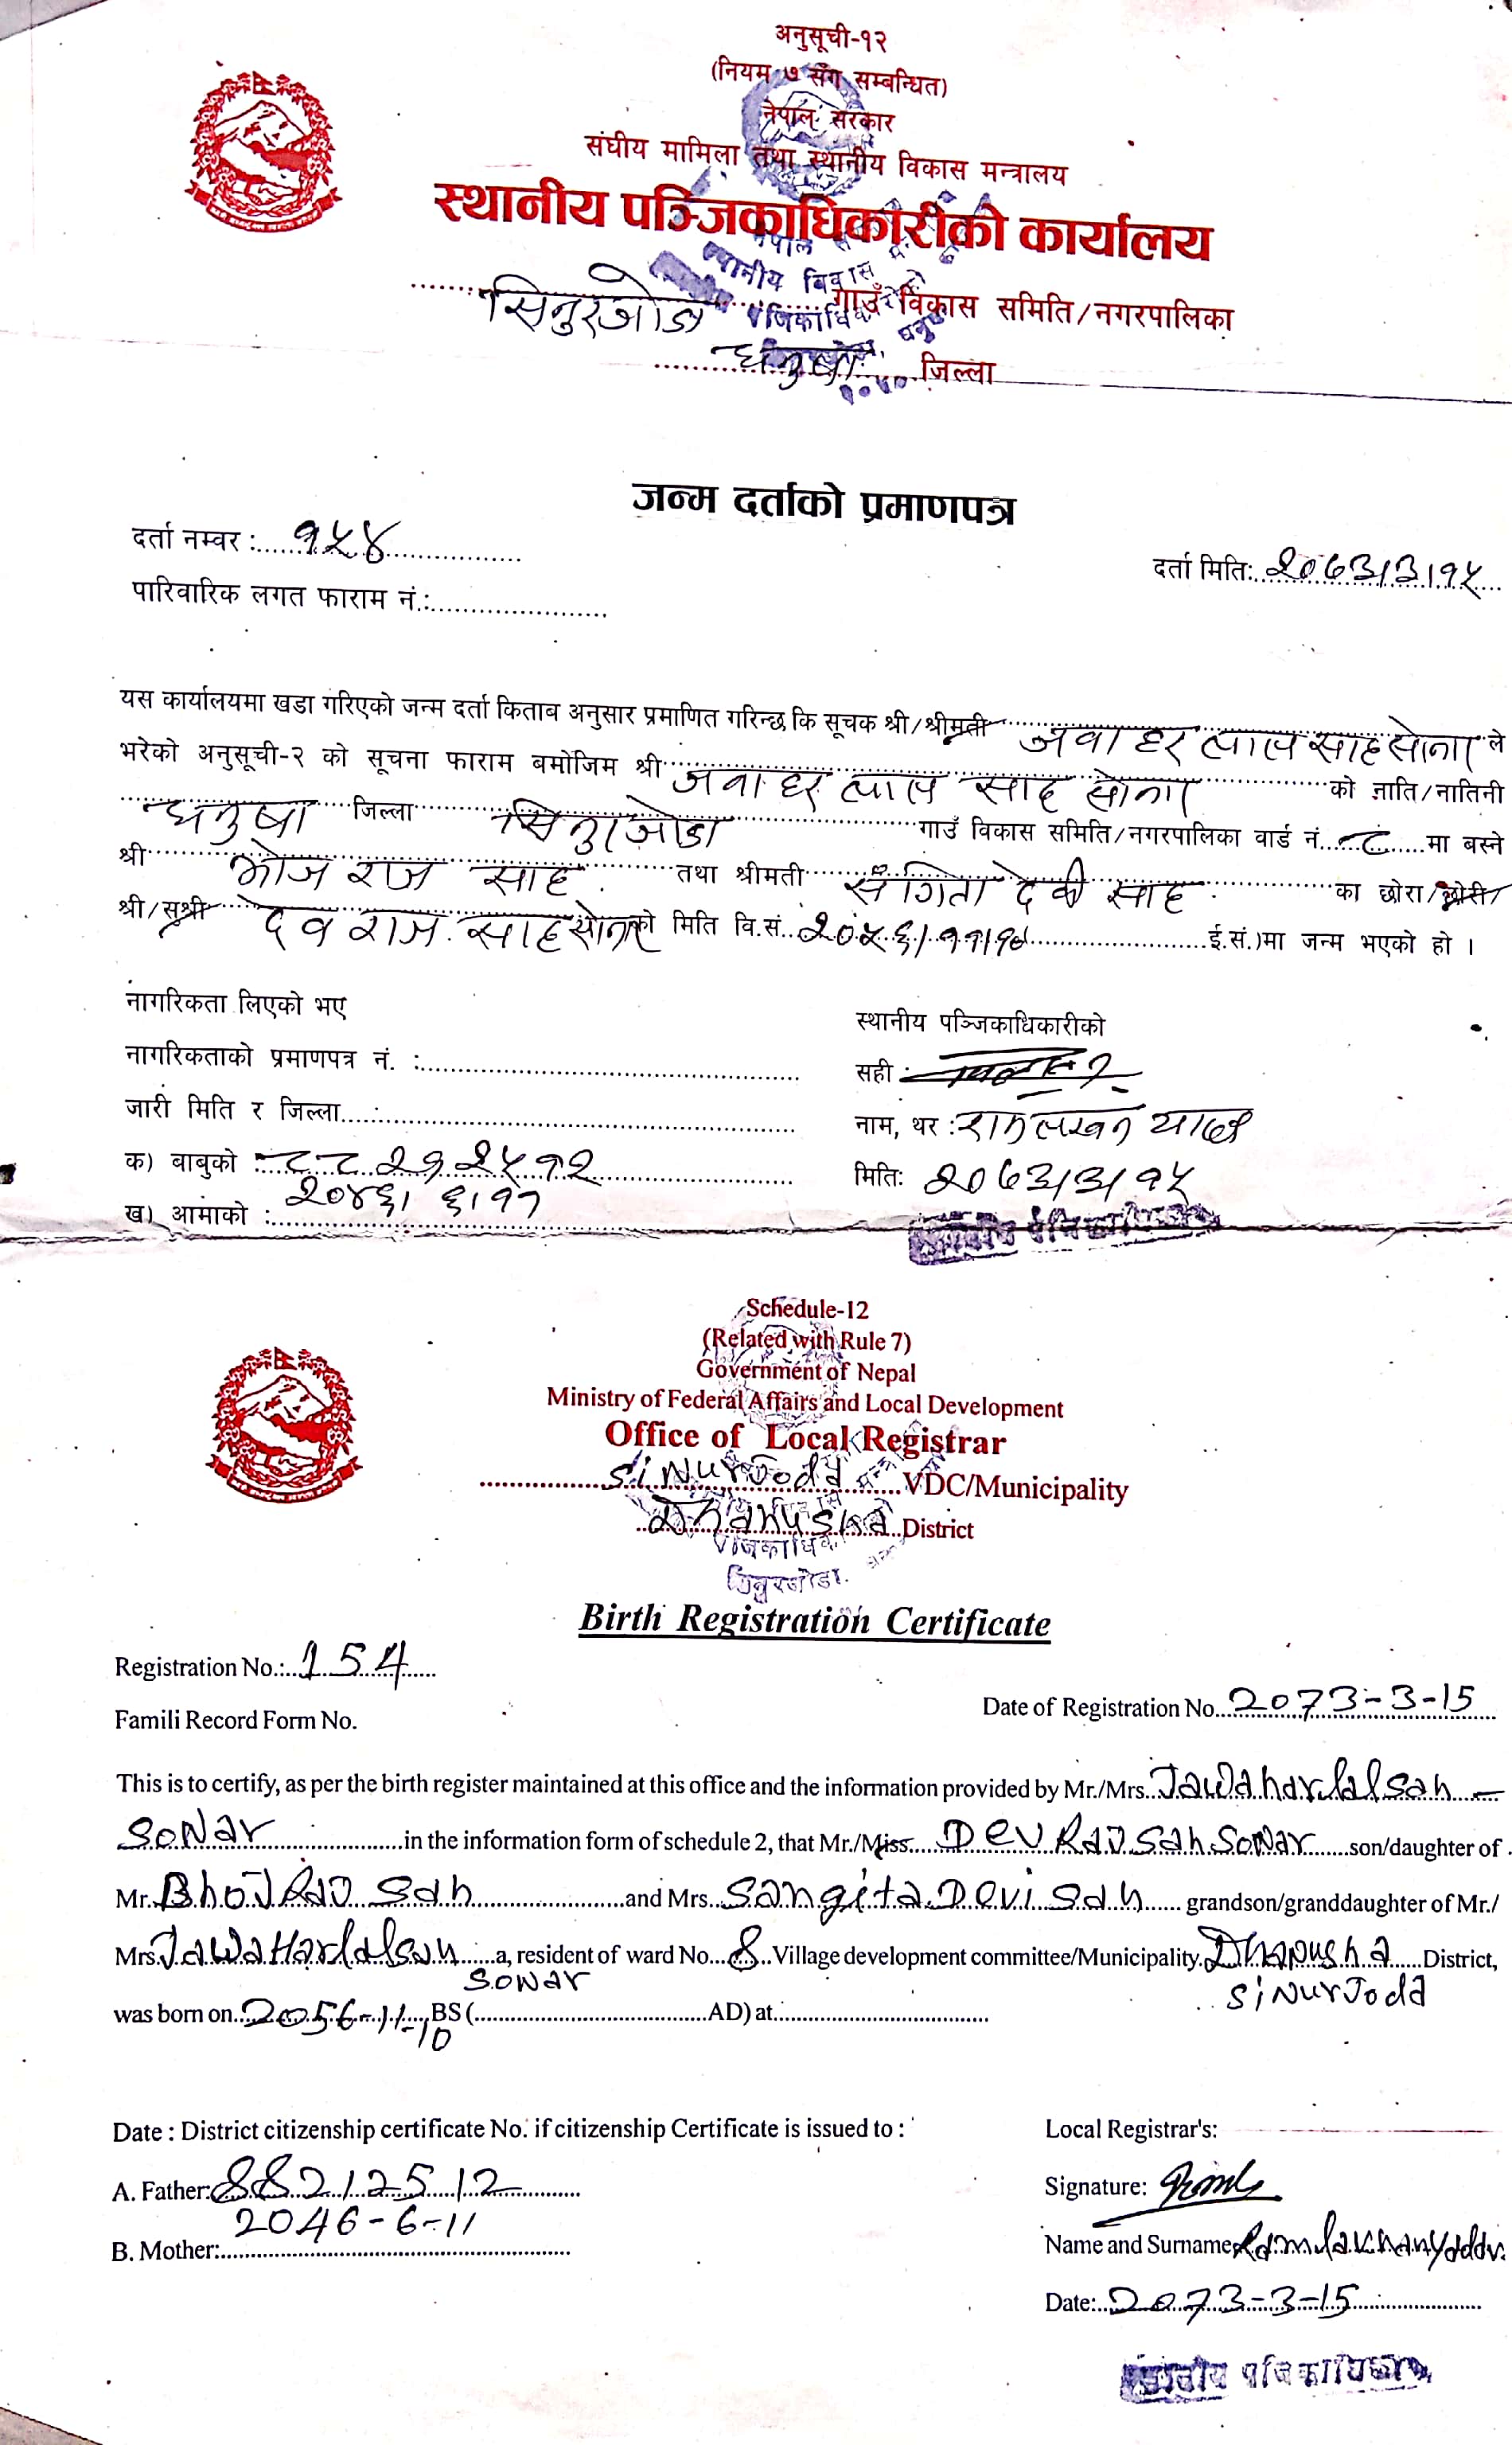 अनुसूची-१२
(नियम ७ सँग सम्बन्धित)
नेपाल सरकार
संघीय मामिला तथा स्थानीय विकास मन्त्रालय
स्थानीय पञ्जिकाधिकारीको कार्यालय
सिनुरजोडा गाउँ विकास समिति/नगरपालिका
धनुषा जिल्ला
जन्म दर्ताको प्रमाणपत्र
दर्ता नम्वर : १५४
दर्ता मिति: २०७३।३।१५
पारिवारिक लगत फाराम नं.:
यस कार्यालयमा खडा गरिएको जन्म दर्ता किताब अनुसार प्रमाणित गरिन्छ कि सूचक श्री/श्रीमती जवाहर लाल साह सोनार ले
भरेको अनुसूची-२ को सूचना फाराम बमोजिम श्री जवाहर लाल साह सोनार को नाति/नातिनी
धनुषा जिल्ला सिनुरजोडा गाउँ विकास समिति/नगरपालिका वार्ड नं. ८ मा बस्ने
श्री भोज राज साह तथा श्रीमती संगिता देवी साह का छोरा/छोरी/
श्री/सुश्री देव राज साह सोनार को मिति वि.सं. २०५६।११।१० ई.सं.)मा जन्म भएको हो ।
नागरिकता लिएको भए
स्थानीय पञ्जिकाधिकारीको
नागरिकताको प्रमाणपत्र नं. :
सही :
जारी मिति र जिल्ला :
नाम, थर : रामलखन यादव
क) बाबुको : ८८२१२५१२
मिति: २०७३।३।१५
२०४६।६।११
ख) आमाको :
स्थानीय पंजिकाधिकारी
Schedule-12
(Related with Rule 7)
Government of Nepal
Ministry of Federal Affairs and Local Development
Office of Local Registrar
SiNurJoda VDC/Municipality
Dhanusha District
पंजिकाधिक
सिनुरजोडा.
Birth Registration Certificate
Registration No.: 154
Date of Registration No. 2073-3-15
Famili Record Form No.
This is to certify, as per the birth register maintained at this office and the information provided by Mr./Mrs. Jawaharlal sah
SoNar in the information form of schedule 2, that Mr./Miss. Dev Raj sah SoNar son/daughter of
Mr. Bhoj Raj sah and Mrs. Sangita Devi sah grandson/granddaughter of Mr./
Mrs. JawaHarlal sah a, resident of ward No. 8 Village development committee/Municipality. Dhanusha District,
SoNar SiNurJoda
was born on. 2056-11-10 BS (AD) at
Date : District citizenship certificate No. if citizenship Certificate is issued to :
Local Registrar's:
A. Father: 88212512
Signature:
2046-6-11
Name and Surname Ramlakhan Yadav.
B. Mother:
Date: 2073-3-15
स्थानीय पंजिकाधिकारी